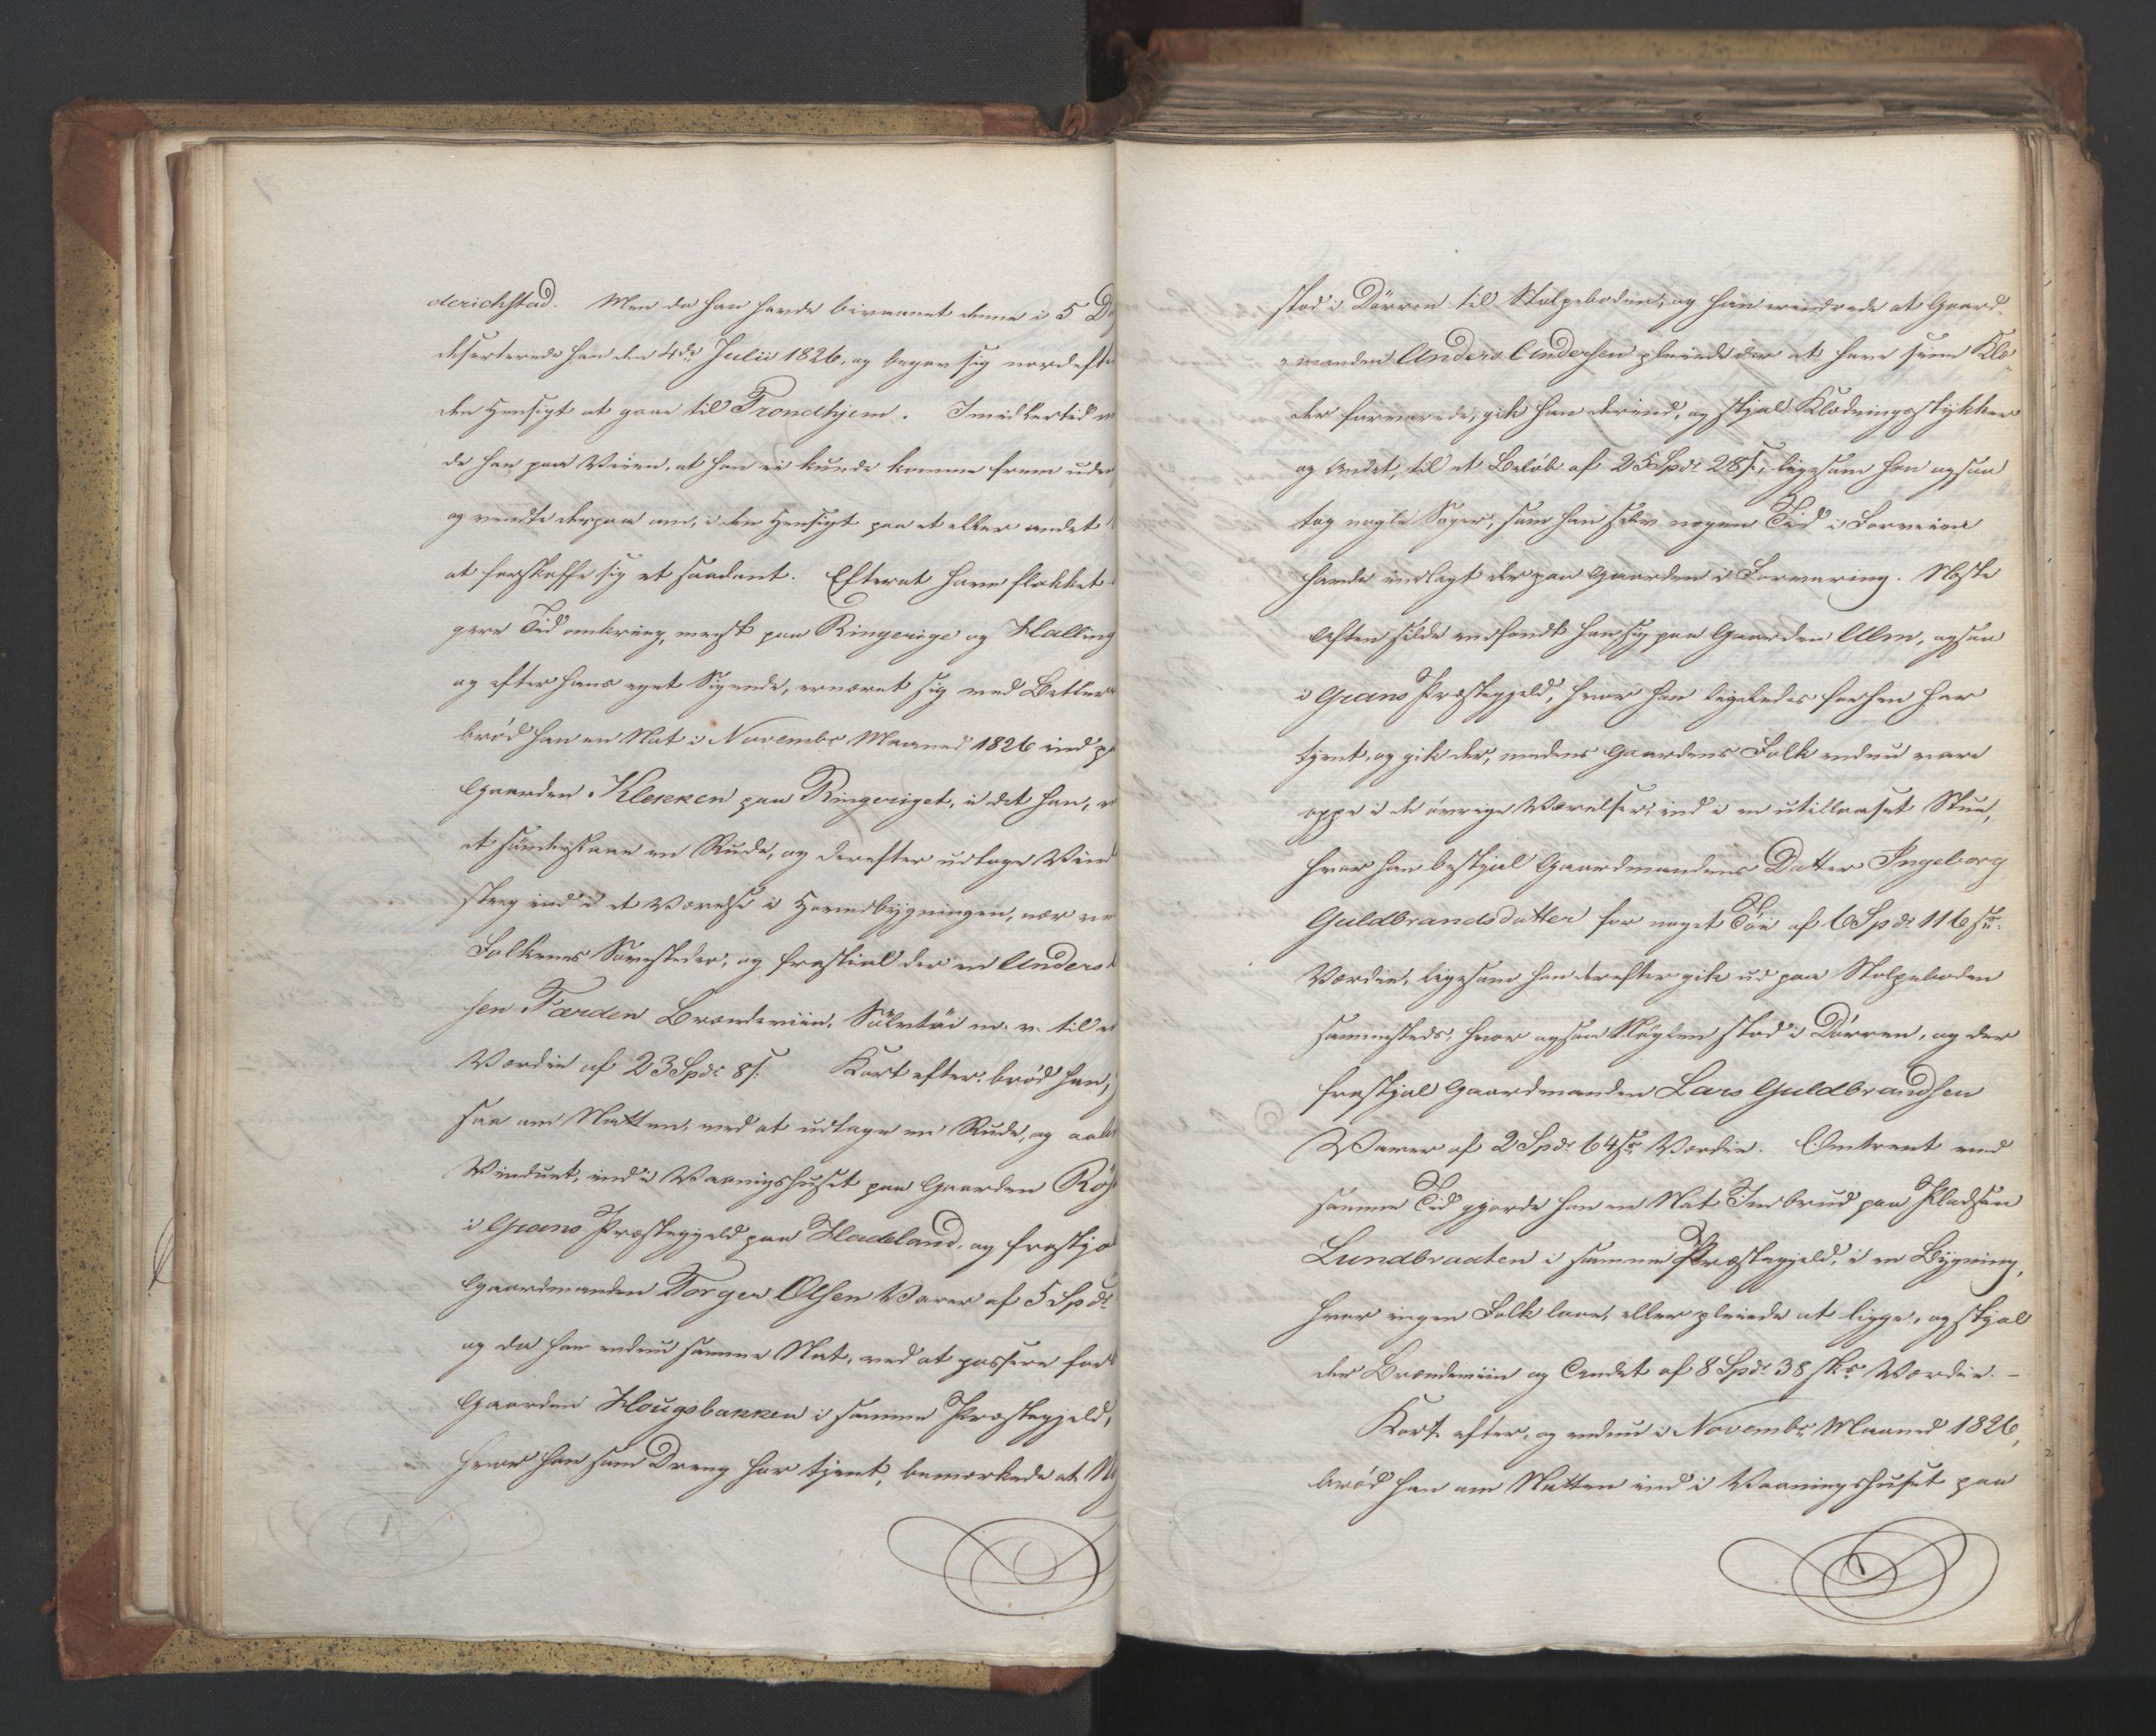 derichstad. Men da han havde bivaanet denne i 5 Da
deserterede han den 4de Julii 1826, og begav sig nordefte
den Hensigt at gaae til Trondhjem. Imidlertid
de han paa Veien, at han ei kunde komme frem uden
og vendte derpaa om, i den Hensigt paa et eller andet
at forskaffe sig et saadant. Efterat have flakket
gere Tid omkring, meest paa Ringerige og Halling
og efter hans eget Sigende, ernæret sig med Betler
brød han en Nat i Novembr Maaned 1826 ind p
Gaarden Klekken paa Ringeriget, i det han, v
at sønderslaae en Rude, og derefter udtage Vind
steeg ind i et Værelse i Hovedbygningen, nær ve
Folkenes Sovesteder, og frastial der en Anders
sen Færden Brændeviin, Sölvtöi m. v. til et
Værdie af 23 Spdr 8 s. Kort efter brød han,
saa om Natten, med at udtage en Rude, og aabn
Vinduet, ind i Vaaningshuset paa Gaarden Röj
i Grans Præstegjeld paa Hadeland, og frastja
Gaardmanden Torger Olsen Varer af 5 Spdr
og da han endnu samme Nat, ved at passere forb
Gaarden Hougsbakken i samme Præstegjeld,
hvor han som Dreng har tjent, bemærkede at Nø
stod i Dörren til Stolpeboden, og han erindrede at Gaard-
manden Anders Andersen pleiede der at have sine Klæ-
der forvarede, gik han derind, og stjal Klædningsstykker
og Andet, til et Beløb af 25 Spdr 28 s., ligesom han ogsaa
tog nogle Sager, som han selv nogen Tid i Forveien
havde indlagt der paa Gaarden i Forvaring. Næste
Aften silde indfandt han sig paa Gaarden Alm, ogsaa
i Grans Præstegjeld, hvor han ligeledes forhen har
tjent, og gik der, medens Gaardens Folk endnu vare
oppe i de øvrige Værelser, ind i en utillaaset Stue,
hvor han bestjal Gaardmandens Datter Ingeborg
Guldbrandsdatter for noget Töi af 6 Spdr 116 sk.
Værdie, ligesom han derefter gik ud paa Stolpeboden
sammesteds, hvor ogsaa Nøglen stod i Dörren, og der
frastjal Gaardmanden Lars Guldbrandsen
Varer af 2 Spdr 64 sk Værdie. Omtrent ved
samme Tid gjorde han en Nat Indbrud paa Pladsen
Lundbraaten i samme Præstegjeld, i en Bygning,
hvor ingen Folk laae, eller pleiede at ligge, og stjal
der Brændeviin og Andet af 8 Spdr 38 skr Værdie. -
Kort efter, og endnu i Novembr Maaned 1826,
brød han om Natten ind i Vaaningshuset paa